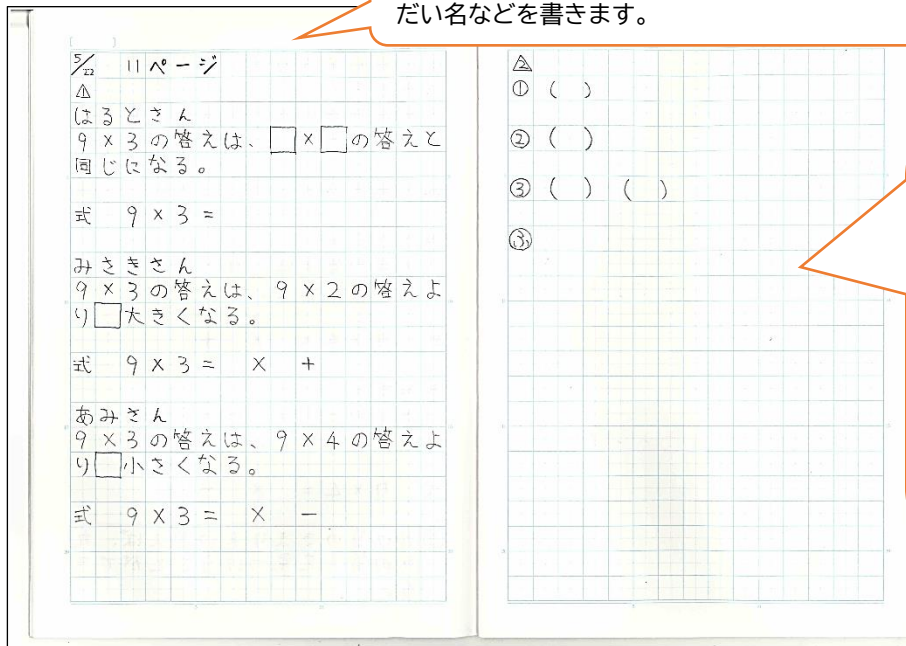 だい名などを書きます。
(  )
5/22 11ページ
⚠1
はるとさん
9×3の答えは、□×□の答えと
同じになる。
式 9×3=
みさきさん
9×3の答えは、9×2の答えよ
り□大きくなる。
式 9×3= × +
あみさん
9×3の答えは、9×4の答えよ
り□小さくなる。
式 9×3= × −
△2
① ( )
② ( )
③ ( ) ( )
㋫